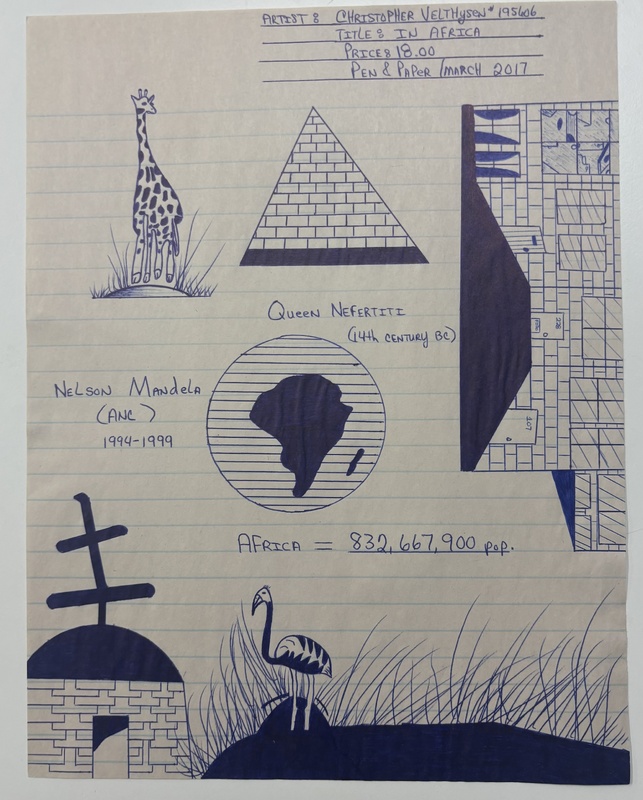 ARTIST: CHRISTOPHER VELTHUSEN #195606
TITLE: IN AFRICA
PRICE: 18.00
PEN & PAPER / MARCH 2017
QUEEN NEFERTITI
(14th CENTURY BC)
NELSON MANDELA
(ANC)
1994-1999
107
AFRICA = 832,667,900 pop.